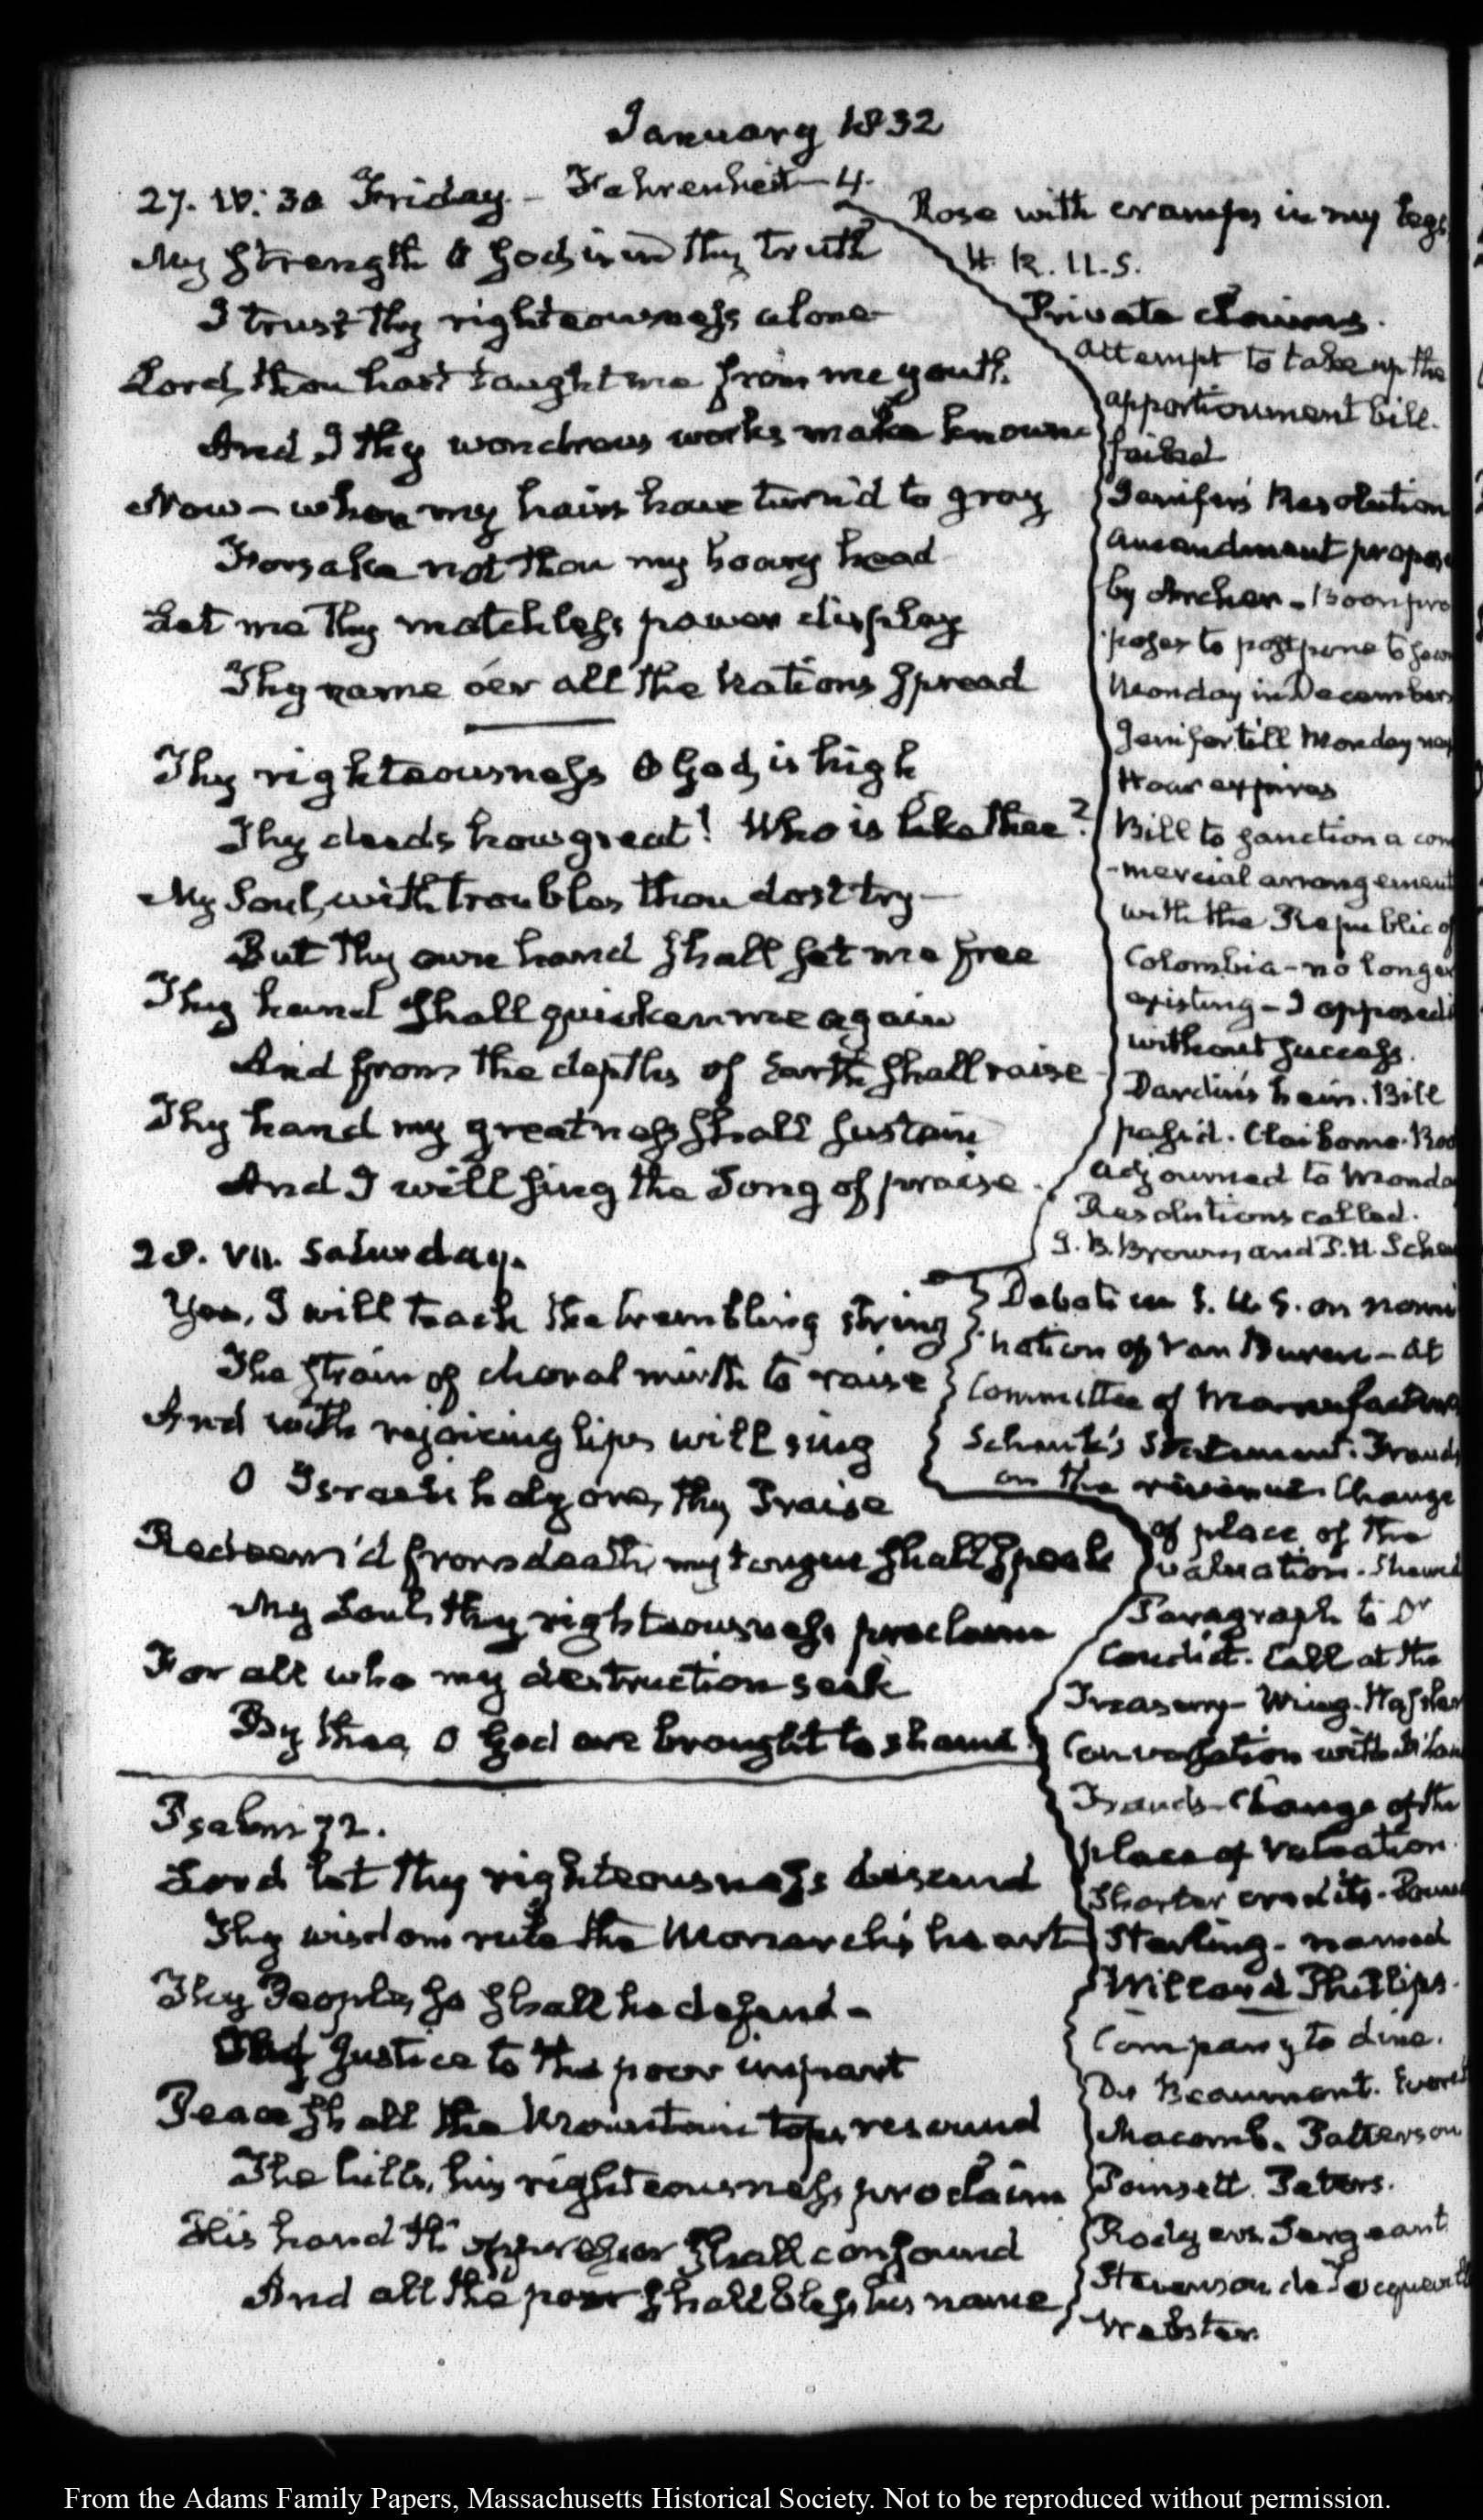 January 1832
27. IV: 30 Friday - Fahrenheit - 4.
My Strength O God, is in thy truth
I trust thy righteousness alone
Lord, thou hast taught me from me youth.
And I thy wondrous works make known
Now - when my hairs have turn'd to gray
Forsake not thou my hoary head
Let me thy matchless power display
Thy name o'er all the Nations spread
Thy righteousness O God, is high
Thy deeds how great! Who is like thee?
My Soul, with troubles thou dost try -
But thy own hand shall set me free
Thy hand shall quicken me again
And from the depths of Earth shall raise
Thy hand my greatness shall sustain
And I will sing the Song of praise.
Rose with cramps in my legs
H. R. U.S.
Private Claims.
attempt to take up the
apportionment bill.
failed
Jenifer's Resolution
amendment propos
by Archer - Boon pro
poses to postpone to
Monday in December
Jenifer till Monday
Hour expires
Bill to sanction a com
-mercial arrangement
with the Republic of
Colombia - no longer
existing - I opposed
without success.
Dardin's heir. Bill
pass'd. Claiborne.
adjourned to Monda
Resolutions called.
J. B. Brown, and P. H. Sche
28. VII. Saturday.
Yea, I will teach the trembling string
The strain of choral mirth to raise
And with rejoicing lips will sing
O Israel's holy one, thy Praise
Redeem'd from death, my tongue shall speak
My Soul, thy righteousness proclaim
For all who my destruction seek
By thee, O God are brought to shame
Psalm 72.
Lord let thy righteousness descend
Thy wisdom rule the Monarch's heart
Thy People, so shall he defend -
Justice to the poor impart
Peace shall the Mountain tops resound
The hills, his righteousness proclaim
His hand th' oppressor shall confound
And all the poor shall bless his name
Debate in S. U.S. on nomi
nation of Van Buren - At
Committee of Manufactures
Schenck's Statement. Frauds
on the revenue. Change
of place of the
valuation. Shewed
Paragraph to Dr
Condict. Call at the
Treasury - Wing. Hassler
Conversation with
Frauds - Change of the
place of Valuation.
Shorter credits.
Sterling - named
Willard Phillips.
Company to dine.
Dr Beaumont. Everet
Macomb. Patterson
Poinsett. Peters.
Rodgers. Sergeant
Stevenson de Tocquevill
Webster.
From the Adams Family Papers, Massachusetts Historical Society. Not to be reproduced without permission.